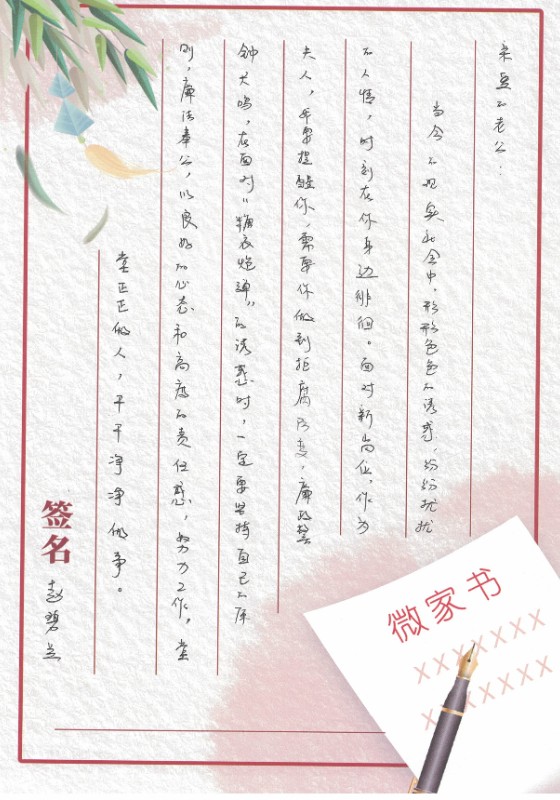 亲爱的老公：
当今的现实社会中，形形色色的诱惑，纷纷扰扰
的人情，时刻在你身边徘徊。面对新岗位，作为
夫人，毋要提醒你，需要你做到拒腐防变，廉政警
钟长鸣，在面对“糖衣炮弹”的诱惑时，一定要坚持自己的原
则，廉洁奉公，以良好的心态和高度的责任感，努力工作，堂
堂正正做人，干干净净做事。
签名 赵碧兰
微家书
XXXXXXX
XXXXXXX